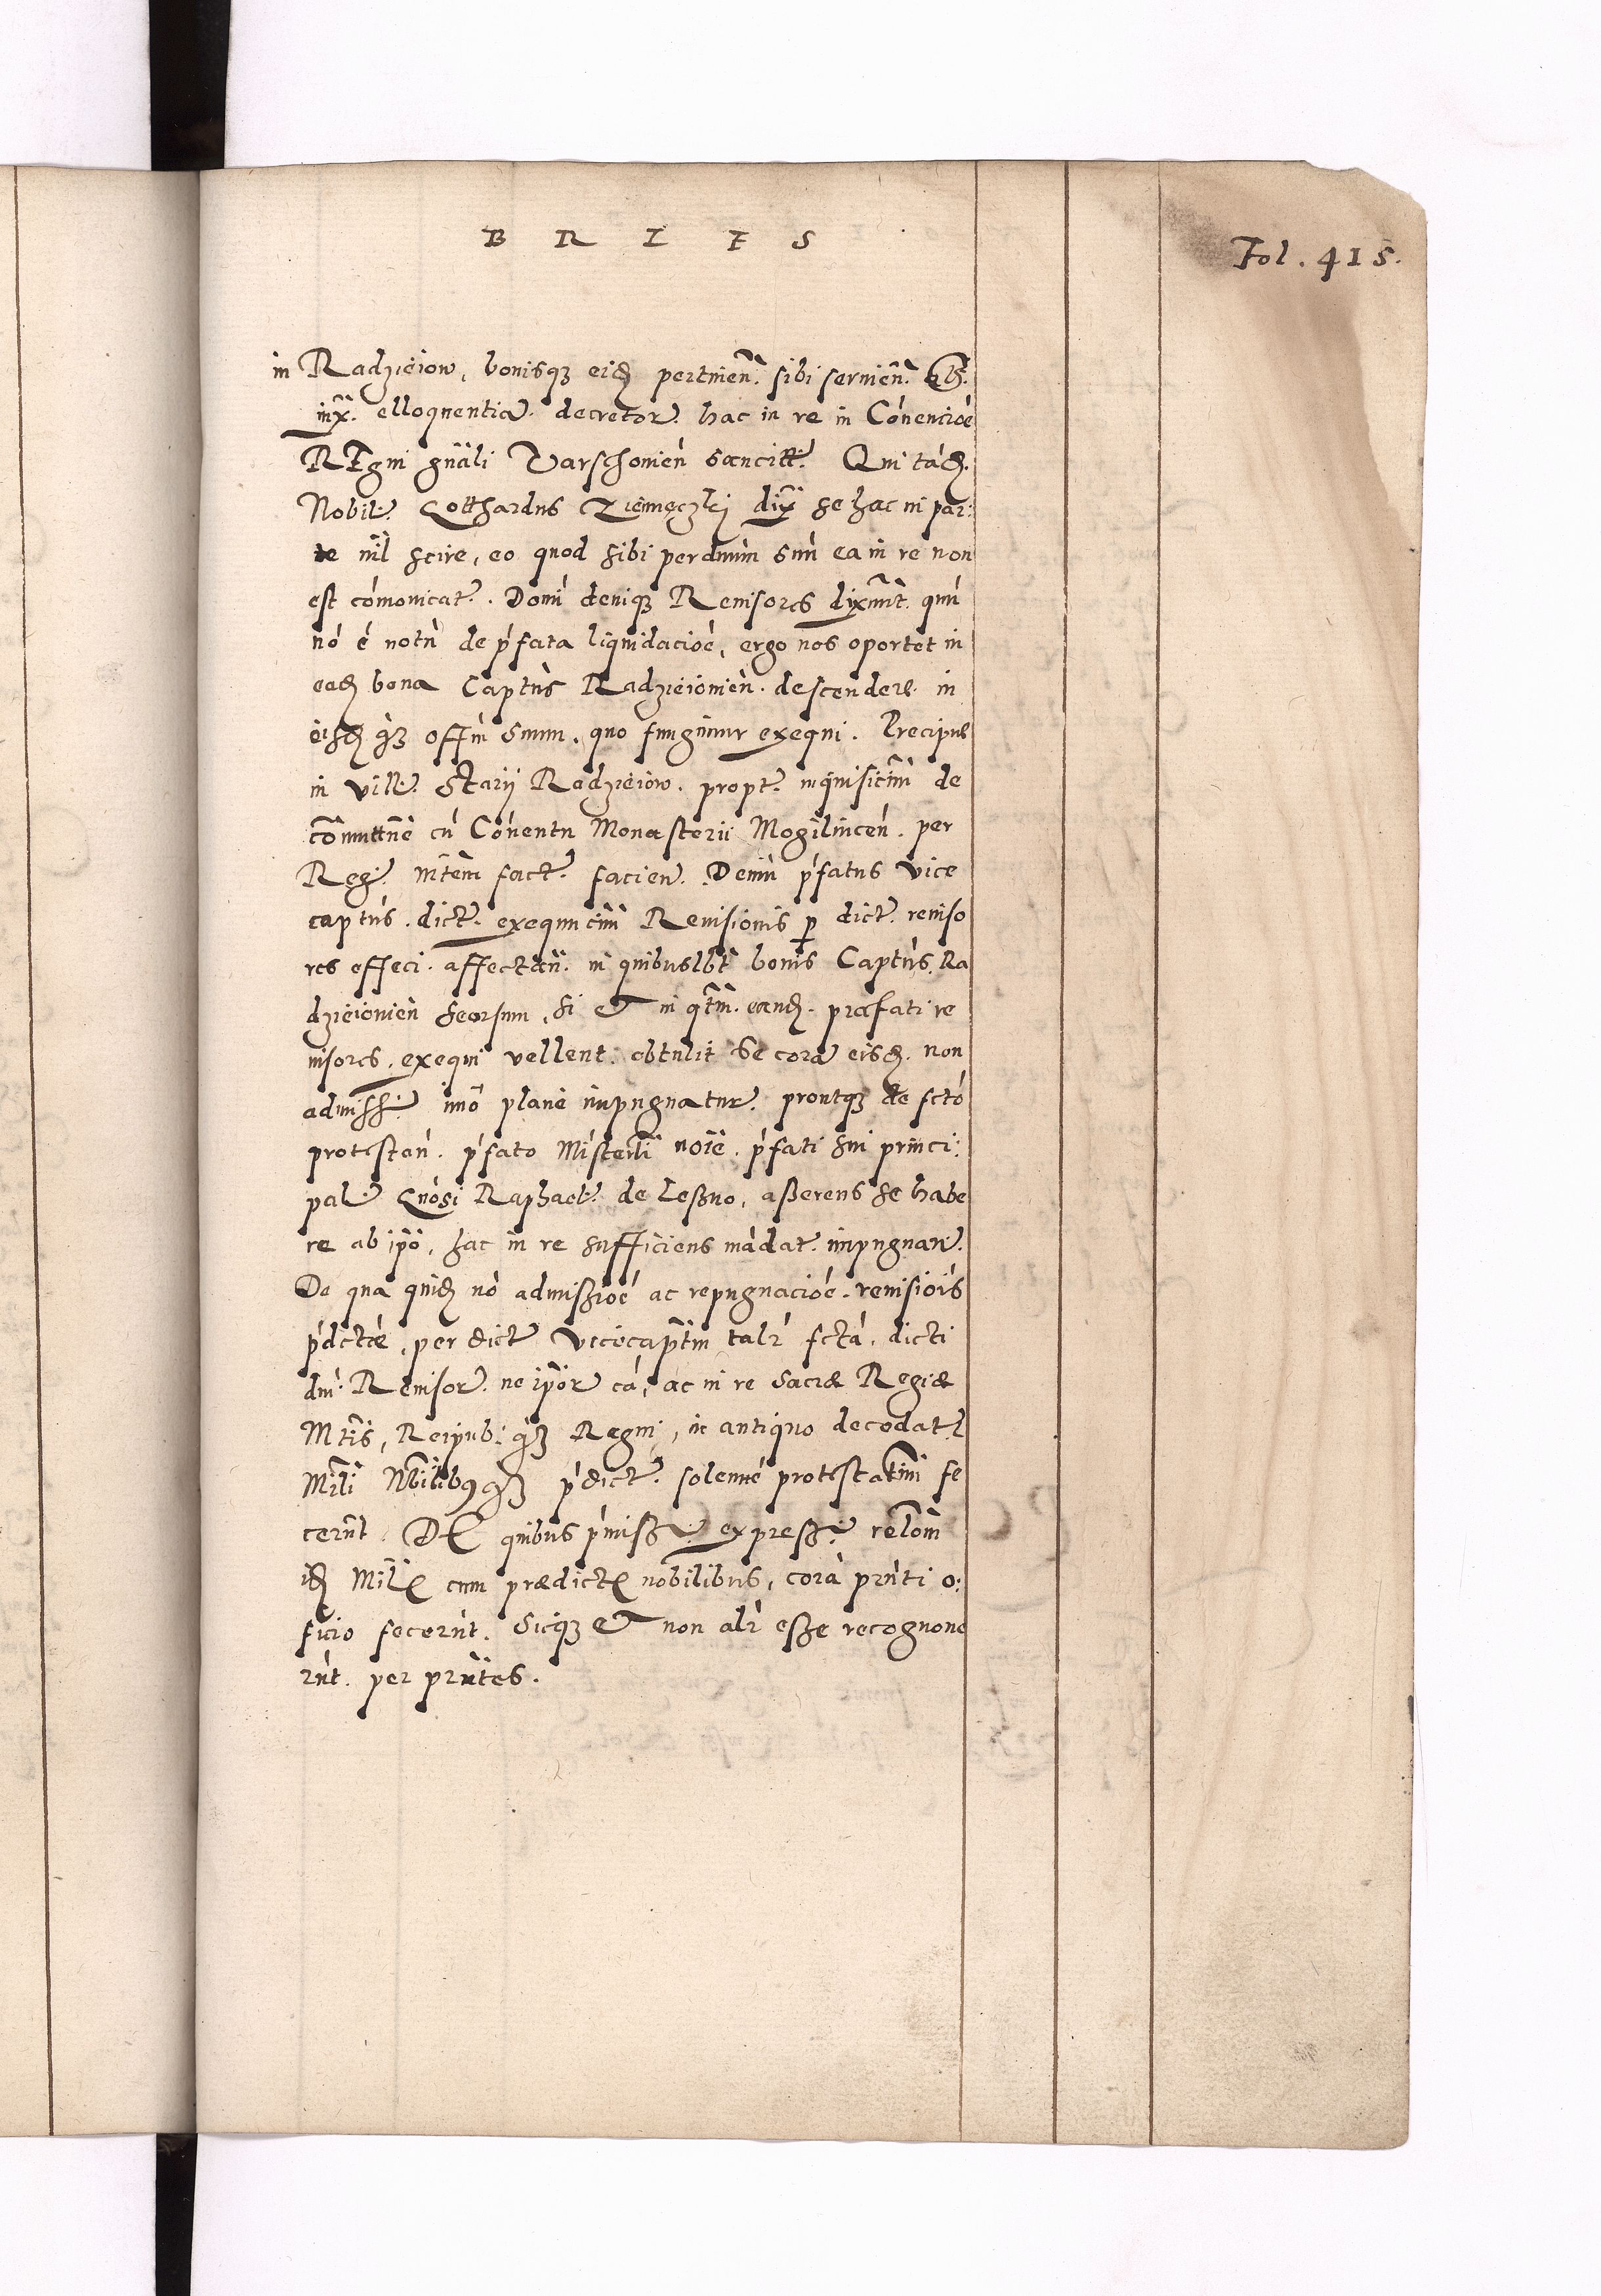 B R I F S
Fol. 415.
in Radzieiow, bonisq3 eid pertinen. sibi servien.
iux. elloquentia. decretor. hac in re in Cónencioé
REgni gnäli Varschovien sancitt. Qui tád.
Nobil. Gotthardus Ziemęczkj dix se hac in par:
te nil scire, eo quod sibi per dnum suu ea in re non
est cómonicat. Domi deniq3 Revisores dixerut. quu
nó é notu de p'fata liquidacioé, ergo nos oportet in
ead bona Captus Radzieiouien. descendere. in
eisd q3 offm Suum. quo fungimur exequi. Precipue
in vill. Starij Radzieiow. propt. inquisicim de
comuttne cu Cóventu Monasterii Mogilnicen. per
Reg. Mtem fact. facien. Demu p'fatus Vice
captus. dict. exequucim Revisionis p dict. reviso
res effeci. affectan. in quibuslbt bonis Captus Ra
dzieiouien seorsum, si et in qtm. eand. præfati re
visores. exequi vellent. obtulit Se cora eisd. non
admiss. imo plane inpugnatur. proutq3 de fctó
protestan. p'fato Misterili noie. p'fati sui princi:
pal. Gnosi Raphael. de Leßno, aßerens se habe
re ab ipo, hac in re sufficiens mádat. inpugnan.
De qua quid nó admißioé ac repugnacióe. revisiois
p'dicte, per dict Vicecaptm talr fcta. dicti
dni. Revisor. ne ipor cá, ac in re Sacræ Regiæ
Mtis, Reipub: q3 Regni, in antiquo decedat
Mili Nbilib9q3 p'dict. solenne protestatim fe
cerut. DE quibus p'miss. expreß. relom
id Mile cum prædicte nobilibus, cora prnti o:
ficio fecerut. Sicq3 et non alr eße recognove
rut. per prntes.